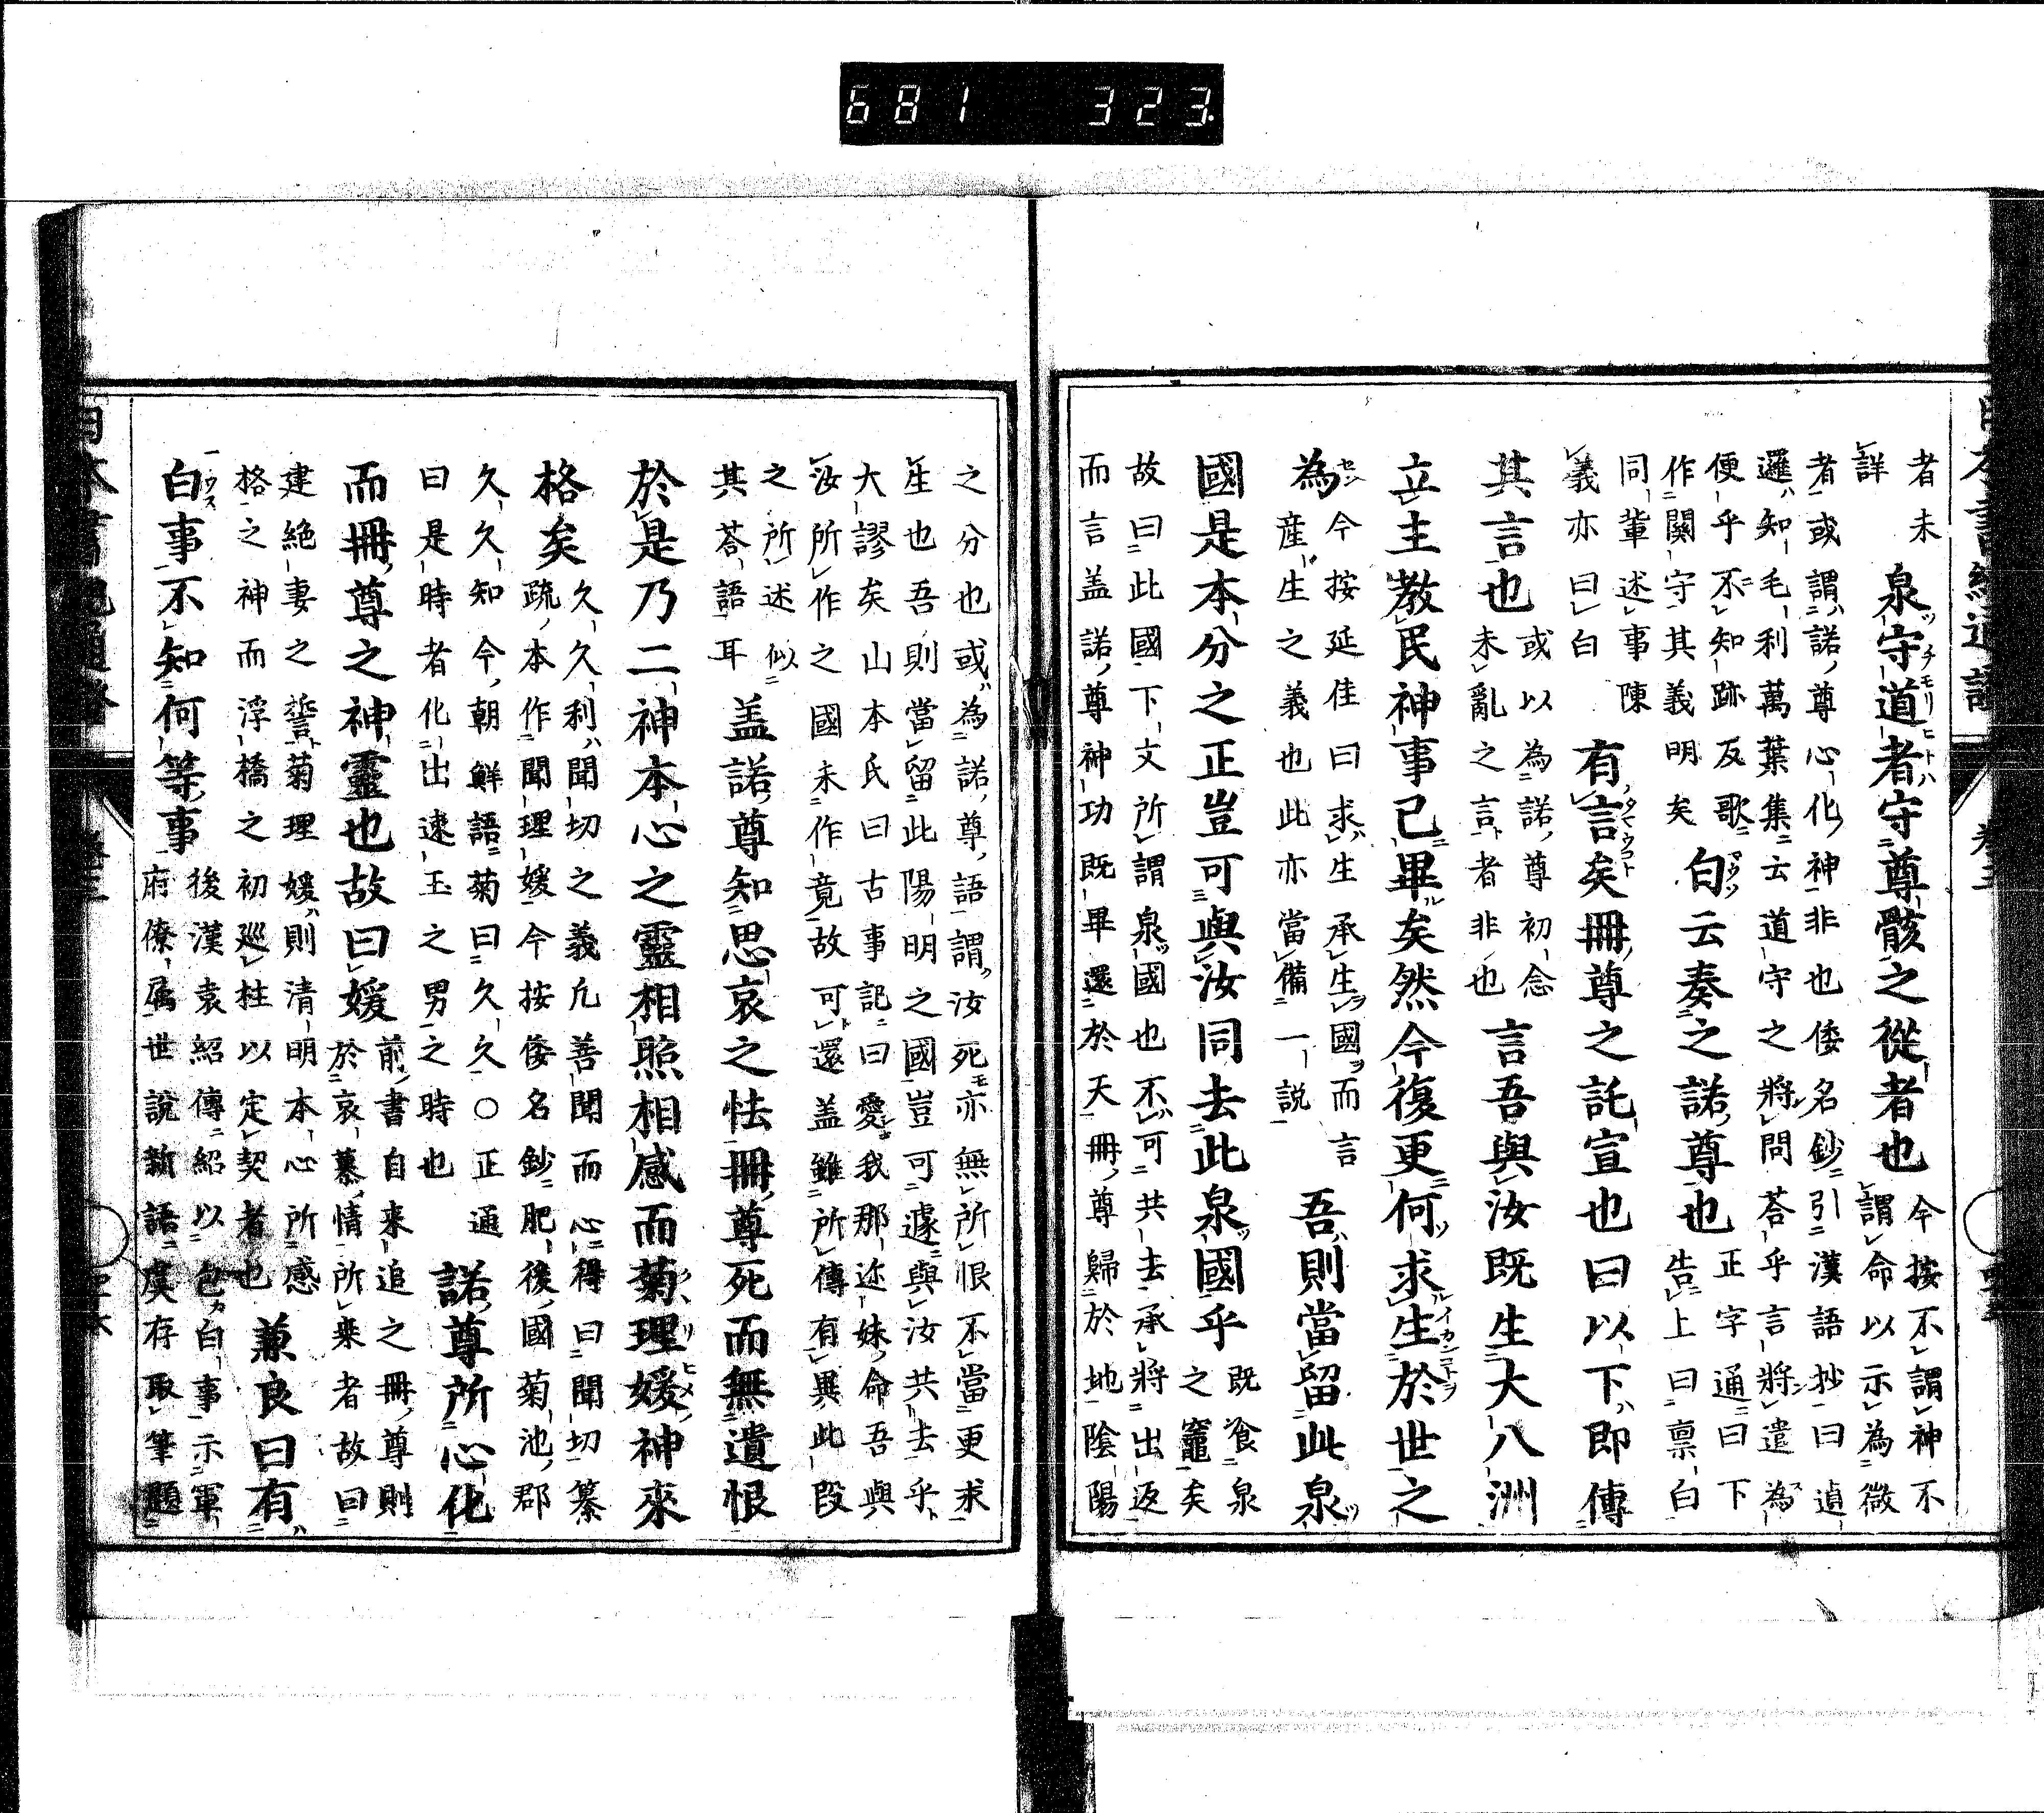 681 323
日本書紀通證
者未
詳
泉守道者守尊骸之從者也
今按不謂神不
謂命以示為微
者或謂諾尊心化神非也倭名鈔引漢語抄曰遉
邏知毛利萬葉集云道守之將問荅乎言將遣為
便乎不知跡反歌
作關守其義明矣
白云奏之諾尊也
正字通曰下
告上曰禀白
同輩述事陳
義亦曰白
有言矣冊尊之託宣也曰以下即傳
其言也
或以為諾尊初念
未亂之言者非也
言吾與汝既生大八洲
立主教民神事已畢矣然今復更何求生於世之
為
今按延佳曰求生承生國而言
産生之義也此亦當備一說
吾則當留此泉
國是本分之正豈可與汝同去此泉國乎
既飡泉
之竈矣
故曰此國下文所謂泉國也不可共去承將出返
而言盖諾尊神功既畢還於天冊尊歸於地陰陽
之分也或為諾尊語謂汝死亦無所恨不當更求
生也吾則當留此陽明之國豈可遽與汝共去乎
大謬矣山本氏曰古事記曰愛我那迩妹命吾與
汝所作之國未作竟故可還盖雖所傳有異此段
之所述似
其荅語耳
盖諾尊知思哀之怯冊尊死而無遺恨
於是乃二神本心之靈相照相感而菊理媛神來
格矣
久久利聞切之義凡善聞而心得曰聞切纂
疏本作聞理媛今按倭名鈔肥後國菊池郡
久久知今朝鮮語菊曰久久○正通
曰是時者化出逮玉之男之時也
諾尊所心化
而冊尊之神靈也故曰媛
前書自来追之冊尊則
於哀慕情所乗者故曰
建絶妻之誓菊理媛則清明本心所感
格之神而浮橋之初廵柱以定契者也
兼良曰有
白事不知何等事
後漢袁紹傳紹以包白事示軍
府僚属世說新語虞存取筆題
日本書紀通證